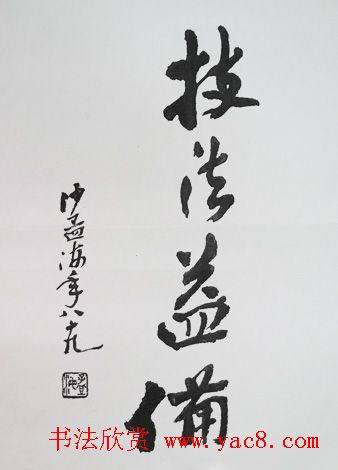 技法益備
沙孟海年八十九
书法欣赏 www.yac8.com